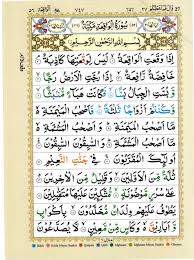 سُوْرَةُ الْوَاقِعَةِ مَكِّيَّةٌ
بِسْمِ اللّٰهِ الرَّحْمٰنِ الرَّحِيْمِ
اِذَا وَقَعَتِ الْوَاقِعَةُ لَيْسَ لِوَقْعَتِهَا كَاذِبَةٌ
خَافِضَةٌ رَّافِعَةٌ اِذَا رُجَّتِ الْاَرْضُ رَجًّا وَّ
بُسَّتِ الْجِبَالُ بَسًّا فَكَانَتْ هَبَآءً مُّنْۢبَثًّا وَّكُنْتُمْ
اَزْوَاجًا ثَلٰثَةً فَاَصْحٰبُ الْمَيْمَنَةِ
مَآ اَصْحٰبُ الْمَيْمَنَةِ وَاَصْحٰبُ الْمَشْـَٔمَةِ
مَآ اَصْحٰبُ الْمَشْـَٔمَةِ وَالسّٰبِقُوْنَ السّٰبِقُوْنَ
اُولٰٓئِكَ الْمُقَرَّبُوْنَ فِيْ جَنّٰتِ النَّعِيْمِ
ثُلَّةٌ مِّنَ الْاَوَّلِيْنَ وَقَلِيْلٌ مِّنَ الْاٰخِرِيْنَ عَلٰى
سُرُرٍ مَّوْضُوْنَةٍ مُّتَّكِـِٕيْنَ عَلَيْهَا مُتَقٰبِلِيْنَ
يَطُوْفُ عَلَيْهِمْ وِلْدَانٌ مُّخَلَّدُوْنَ بِاَكْوَابٍ
وَّاَبَارِيْقَ وَكَاْسٍ مِّنْ مَّعِيْنٍ